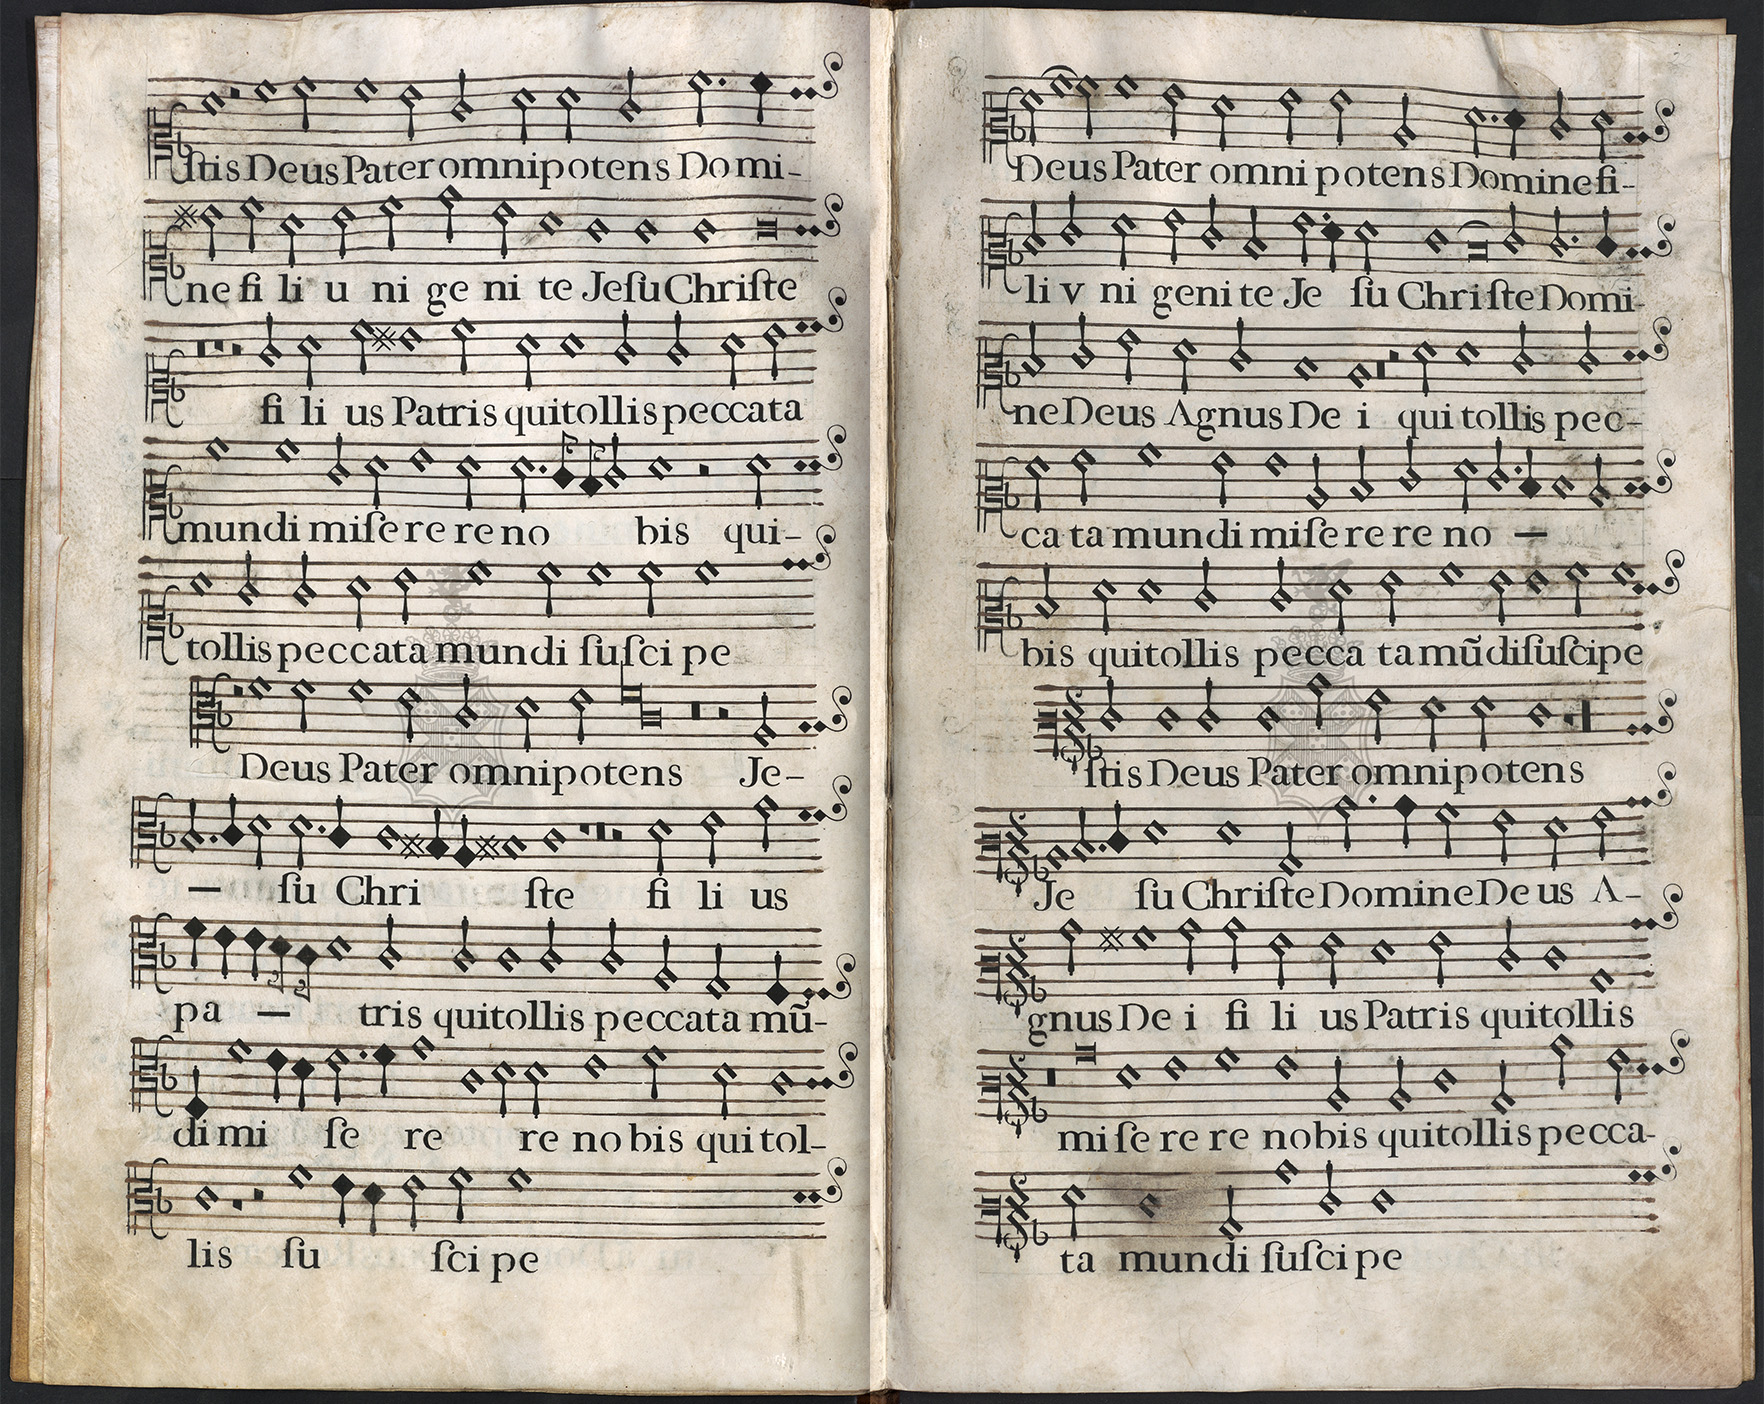 ſtis Deus Pater omnipotens Domi-
ne fi li u ni ge ni te Jeſu Chriſte
fi li us Patris qui tollis peccata
mundi miſe re re no bis qui-
tollis peccata mundi ſuſci pe
Deus Pater omnipotens Je-
— ſu Chri ſte fi li us
pa — tris qui tollis peccata mũ-
di mi ſe re re no bis qui tol-
lis ſu ſci pe
Deus Pater omni potens Domine fi-
li v ni geni te Je ſu Chri ſte Domi-
ne Deus Agnus De i qui tollis pec-
ca ta mundi miſe re re no —
bis qui tollis pecca ta mũdi ſuſcipe
ſtis Deus Pater omnipotens
Je ſu Chriſte Domine De us A-
gnus De i fi li us Patris qui tollis
mi ſe re re nobis qui tollis pecca-
ta mundi ſuſci pe